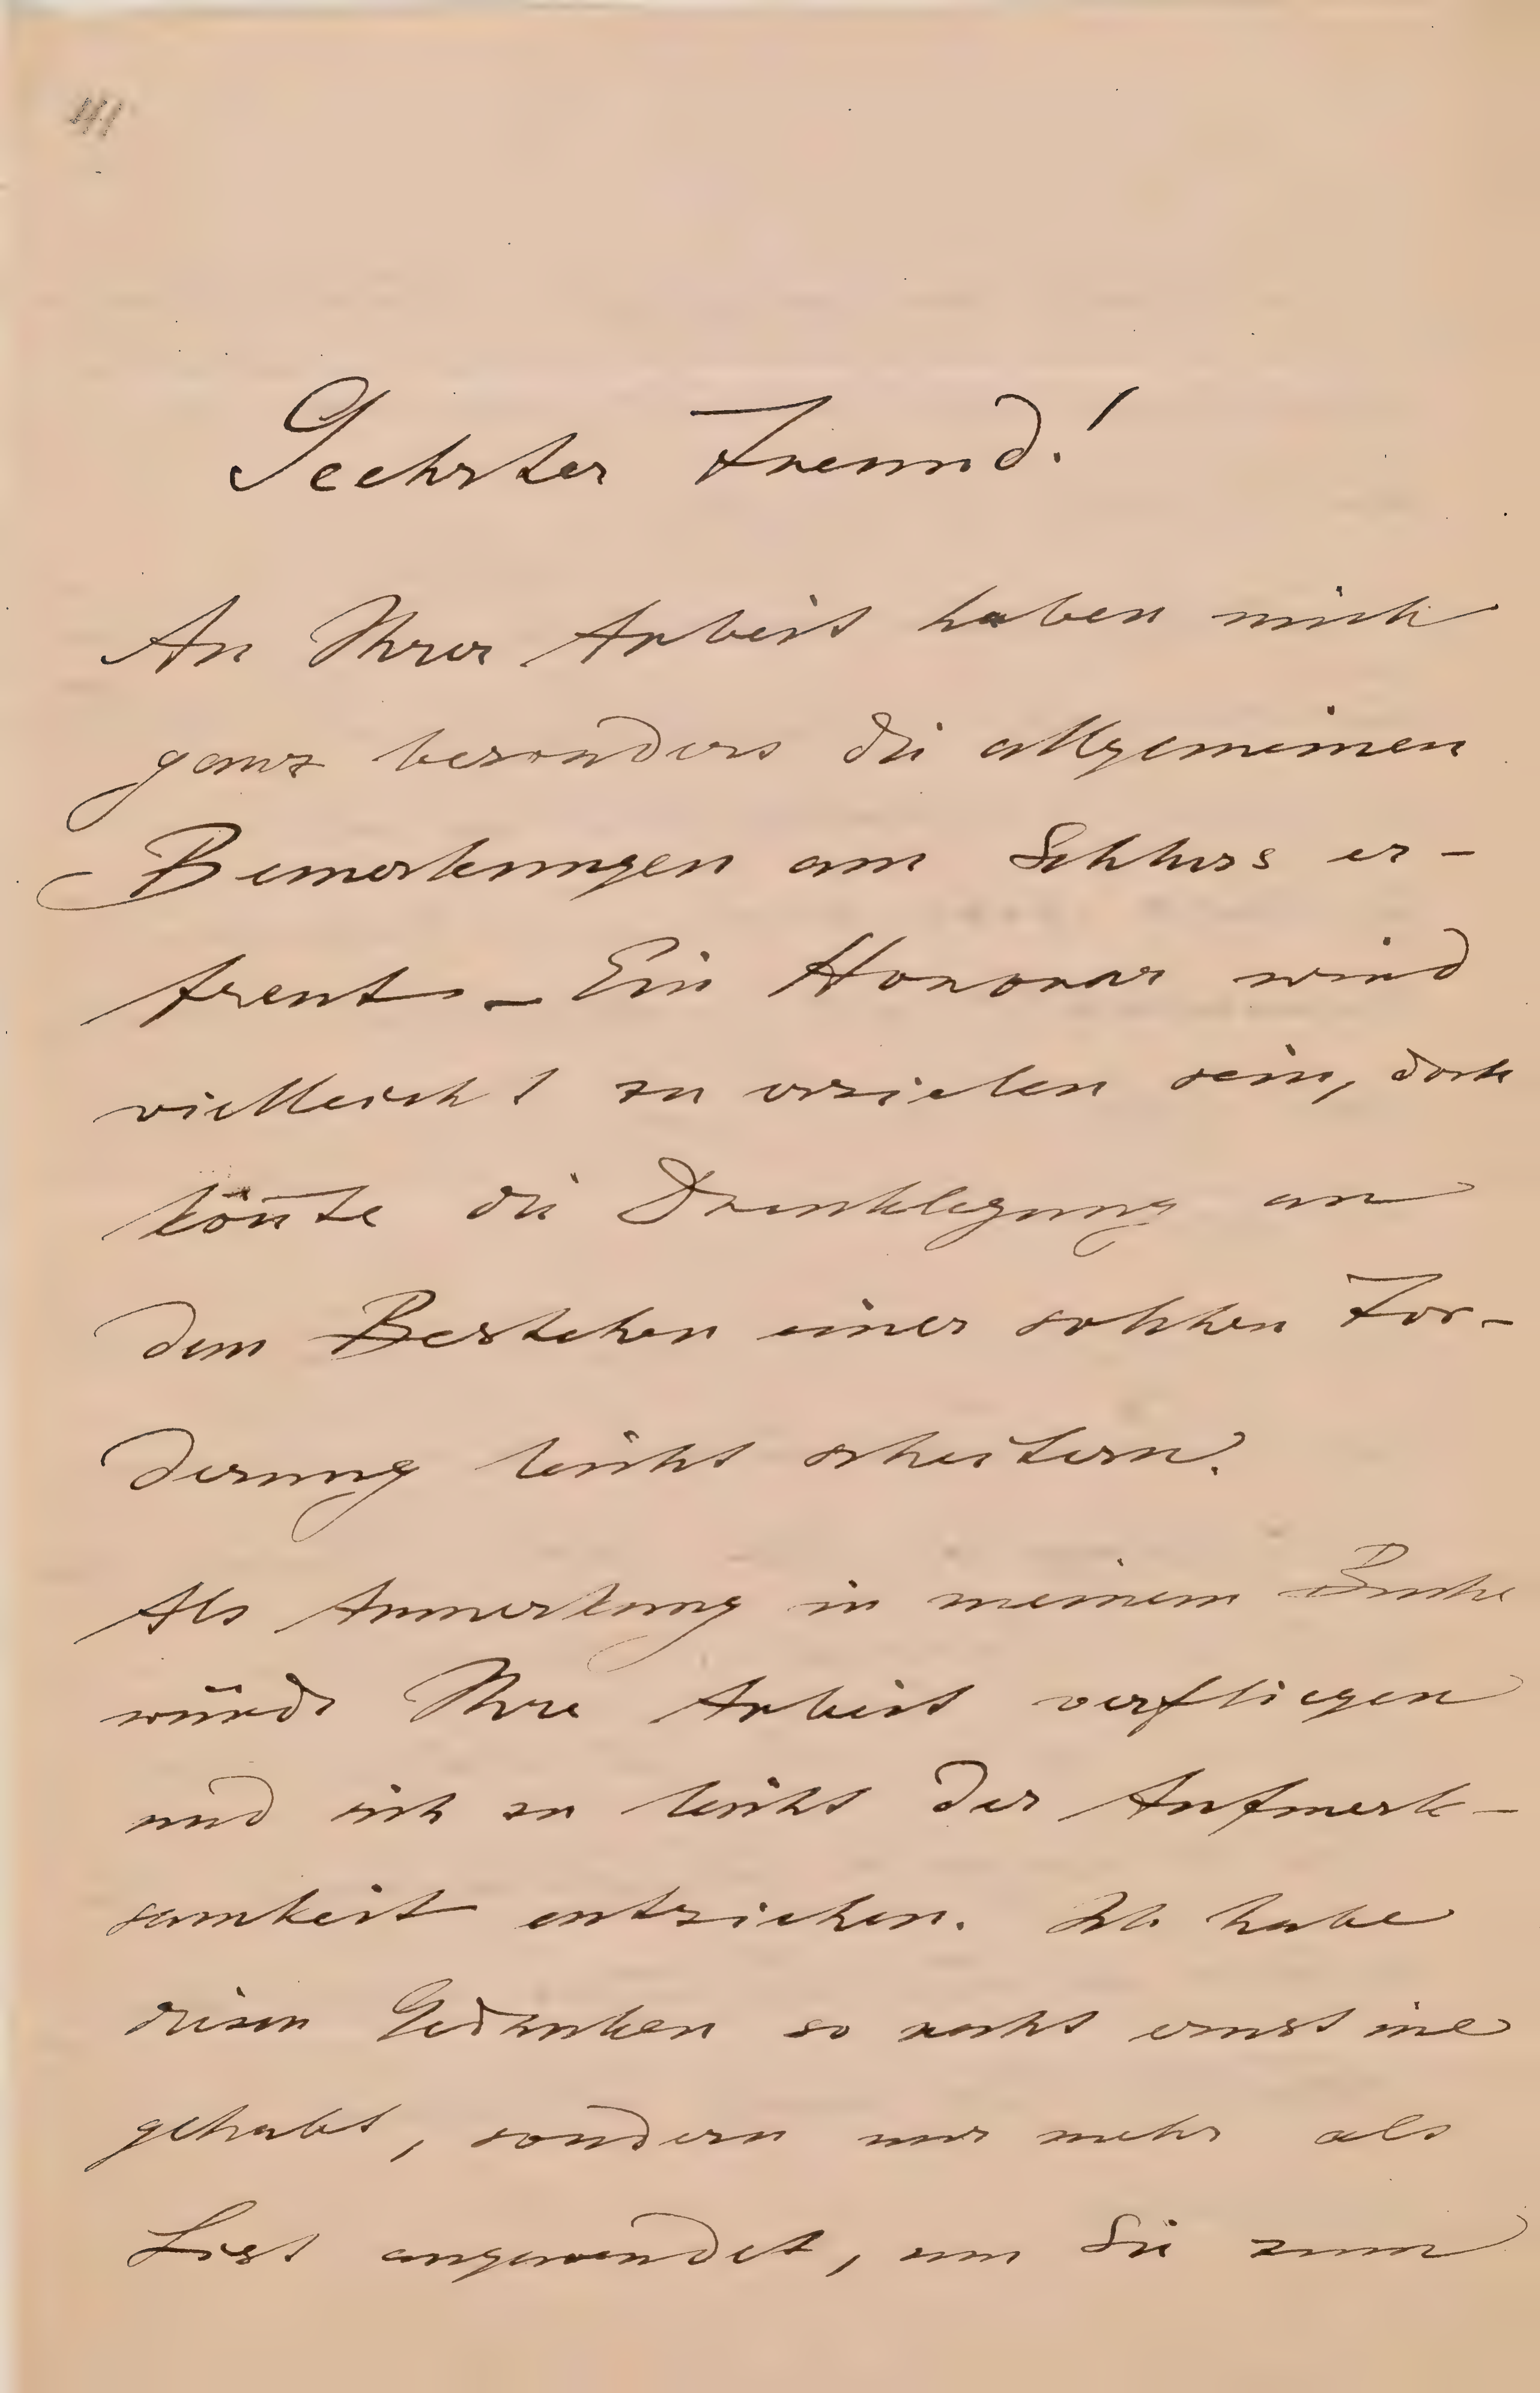 Geehrter Freund!
An Ihrer Arbeit haben mich
ganz besonders die allgemeinen
Bemerkungen am Schluss er-
freut. – Ein Honorar wird
vielleicht zu erzielen sein, doch
kön̄te die Drucklegung an
dem Bestehen einer solchen For-
derung leicht scheitern.
Als Anmerkung in meinem Buche
würde Ihre Arbeit verfliegen
und sich zu leicht der Aufmerk-
samkeit entziehen. Ich habe
diesen Gedanken so recht ernst nie
gehabt, sondern nur mehr als
List angewendet, um Sie zum